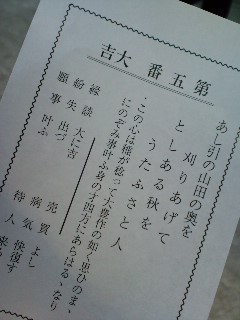 第五番 大吉
あし引の山田の奥を
刈りあげて
としある秋を
うたふさと人
この心は稲が稔って大豊作の如く思ひのまゝ
にのぞみ事叶ふ身のす四方にあらはるゝなり
縁談 大に吉
紛失 出づ
願事 叶ふ
売買 よし
病気 快復す
待人 来る